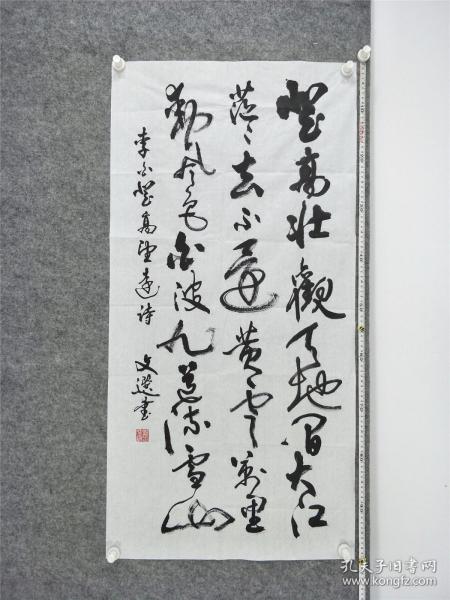 登高壮觀天地間大江
茫々去不還黄雲萬里
動風色白波九道流雪山
李白登高望遠诗
文選書
孔夫子旧书网
www.kongfz.com